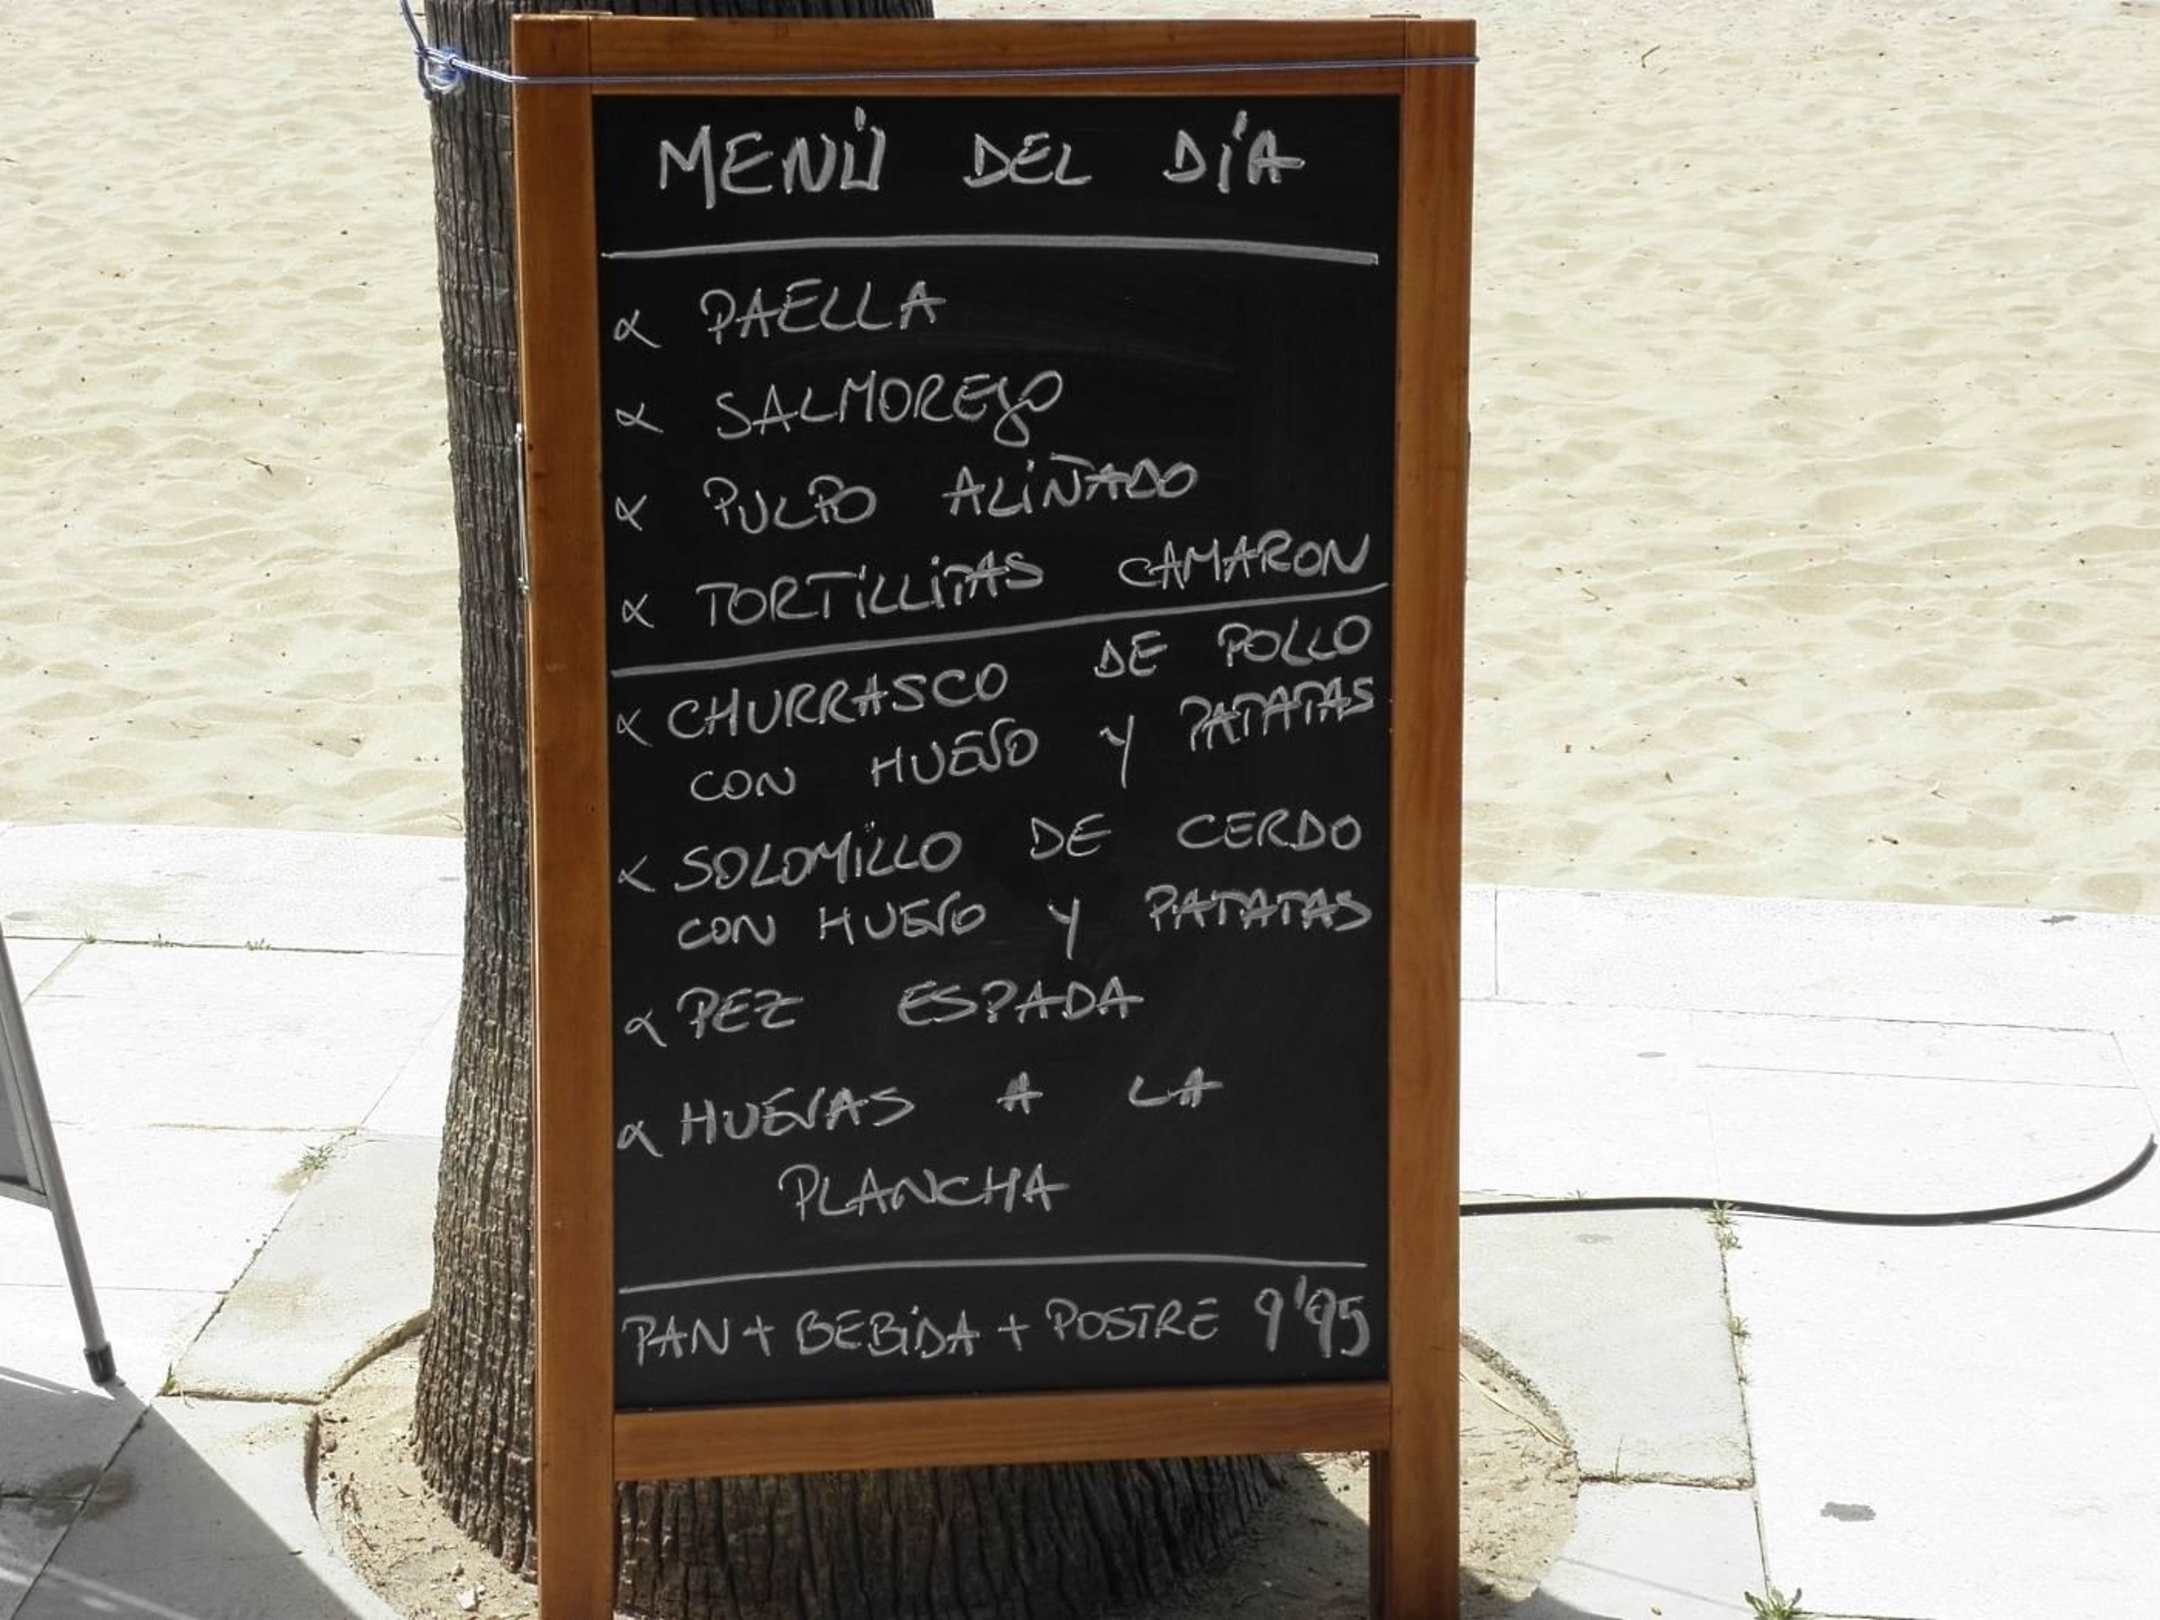 MENÚ DEL DÍA
∝ PAELLA
∝ SALMOREJO
∝ PULPO ALIÑADO
∝ TORTILLITAS CAMARON
∝ CHURRASCO DE POLLO
CON HUEVO Y PATATAS
∝ SOLOMILLO DE CERDO
CON HUEVO Y PATATAS
∝ PEZ ESPADA
∝ HUEVAS A LA
PLANCHA
PAN + BEBIDA + POSTRE 9'95